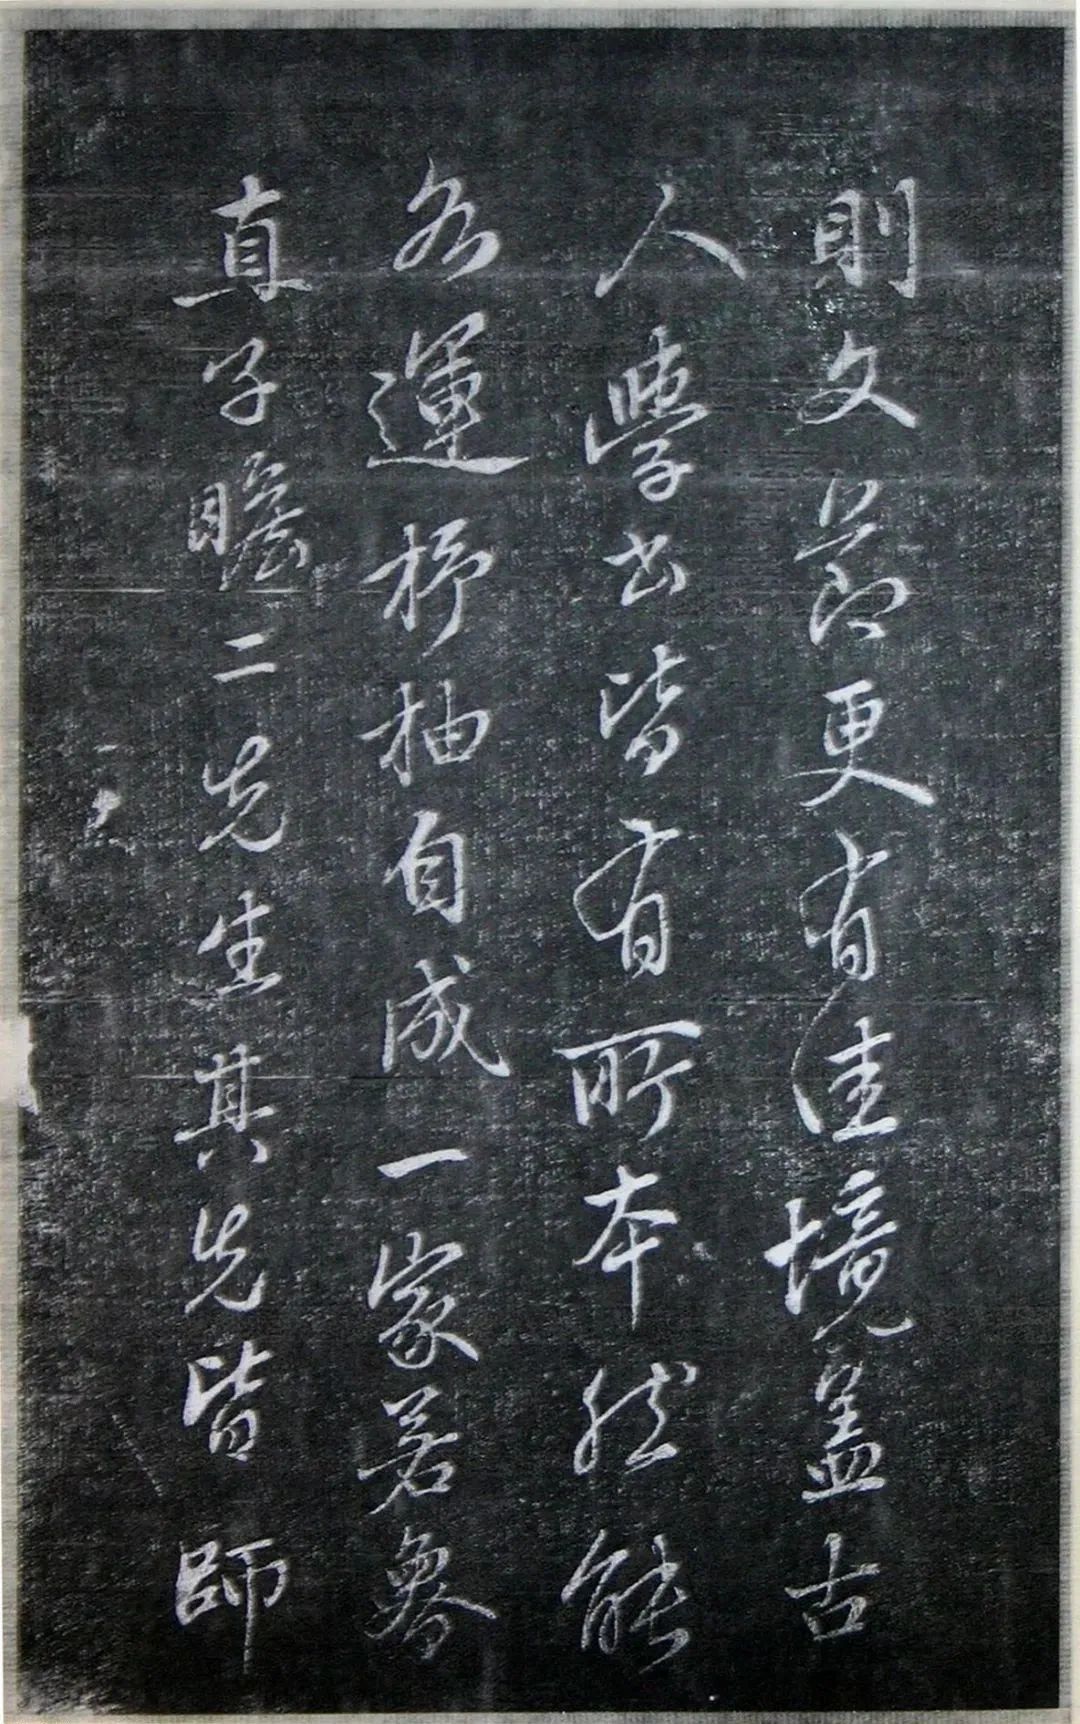 則文節更有佳境盖古
人學書皆有所本然能
各運杼抽自成一家若魯
直子瞻二先生其先皆師